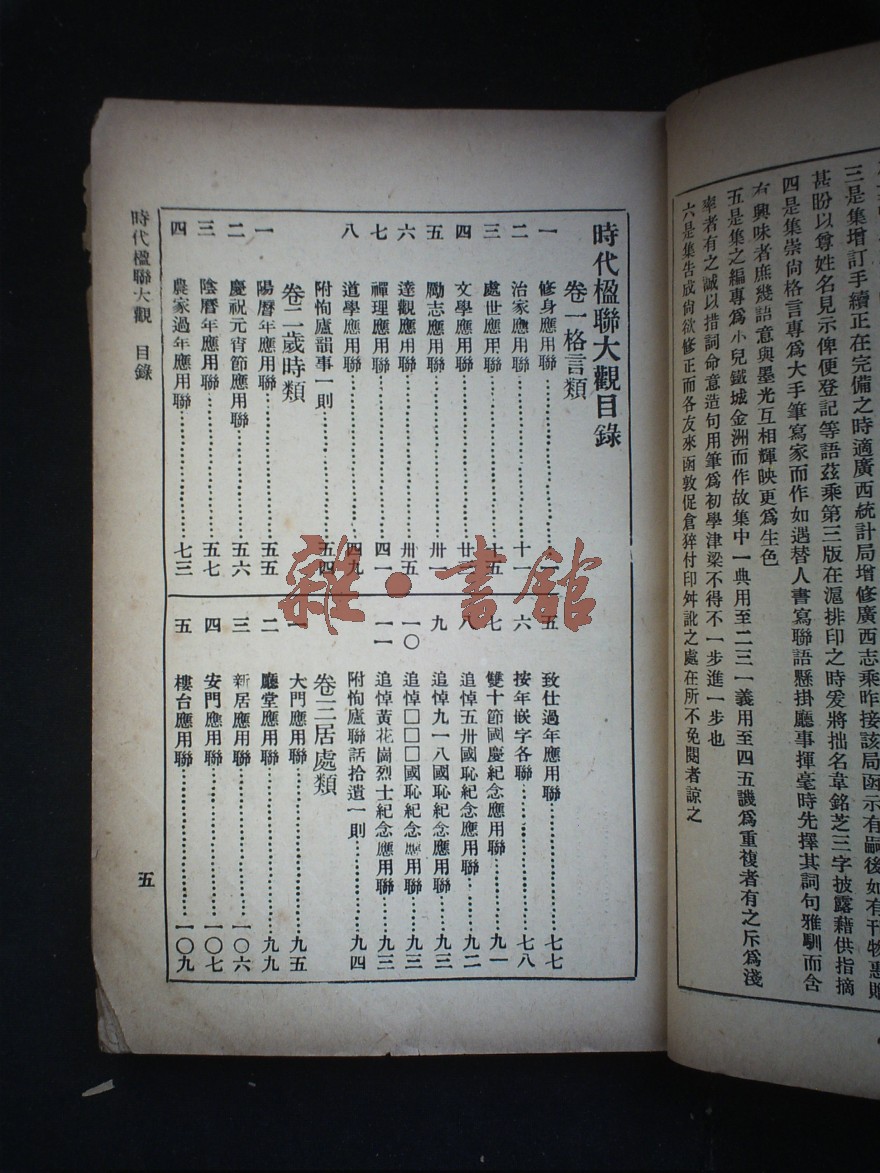 三是集增訂手續正在完備之時適廣西統計局增修廣西志乘昨接該局函示有嗣後如有刊物惠贈
甚盼以尊姓名見示俾便登記等語茲乘第三版在滬排印之時爰將拙名韋銘芝三字披露藉供指摘
四是集崇尙格言專爲大手筆寫家而作如遇替人書寫聯語懸掛廳事揮毫時先擇其詞句雅馴而含
有興味者庶幾語意與墨光互相輝映更爲生色
五是集之編專爲小兒鐵城金洲而作故集中一典用至二三一義用至四五譏爲重複者有之斥爲淺
率者有之誠以措詞命意造句用筆爲初學津梁不得不一步進一步也
六是集告成尙欲修正而各友來函敦促倉猝付印舛訛之處在所不免閱者諒之
時代楹聯大觀目錄
卷一格言類
一 修身應用聯
二 治家應用聯 十一
三 處世應用聯 十五
四 文學應用聯
五 勵志應用聯 卅一
六 達觀應用聯 卅五
七 禪理應用聯 四一
八 道學應用聯 四九
附恂廬韻事一則 五四
卷二歲時類
一 陽曆年應用聯 五五
二 慶祝元宵節應用聯 五六
三 陰曆年應用聯 五七
四 農家過年應用聯 七三
五 致仕過年應用聯 七七
六 按年嵌字各聯 七八
七 雙十節國慶紀念應用聯 九一
八 追悼五卅國恥紀念應用聯 九二
九 追悼九一八國恥紀念應用聯 九三
一〇 追悼□□□國恥紀念應用聯 九三
一一 追悼黃花崗烈士紀念應用聯 九三
附恂廬聯話拾遺一則 九四
卷三居處類
一 大門應用聯 九五
二 廳堂應用聯 九九
三 新居應用聯 一〇六
四 安門應用聯 一〇七
五 樓台應用聯 一〇九
時代楹聯大觀 目錄
五
雜·書館